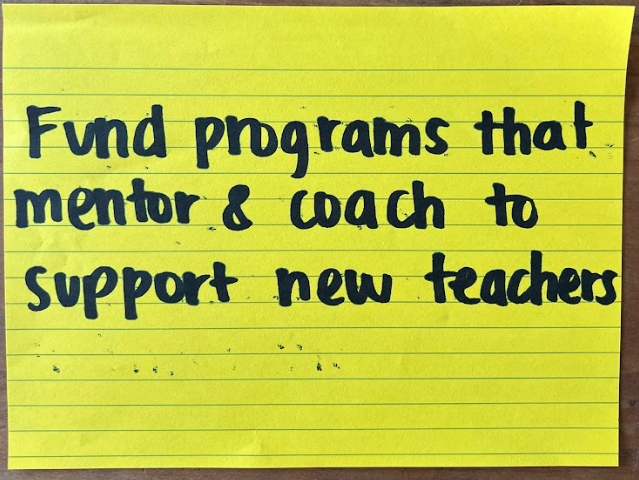 Fund programs that
mentor & coach to
support new teachers